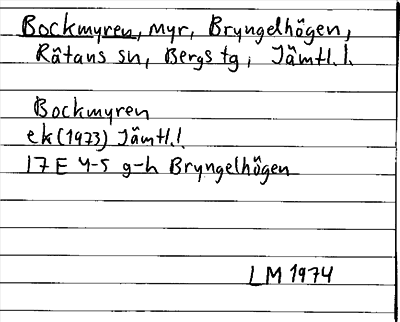 Bockmyren, myr, Bryngelhögen,
Rätans sn, Bergs tg, Jämtl.l.
Bockmyren
ek (1973) Jämtl.l
17 E 4-5 g-h Bryngelhögen
LM 1974